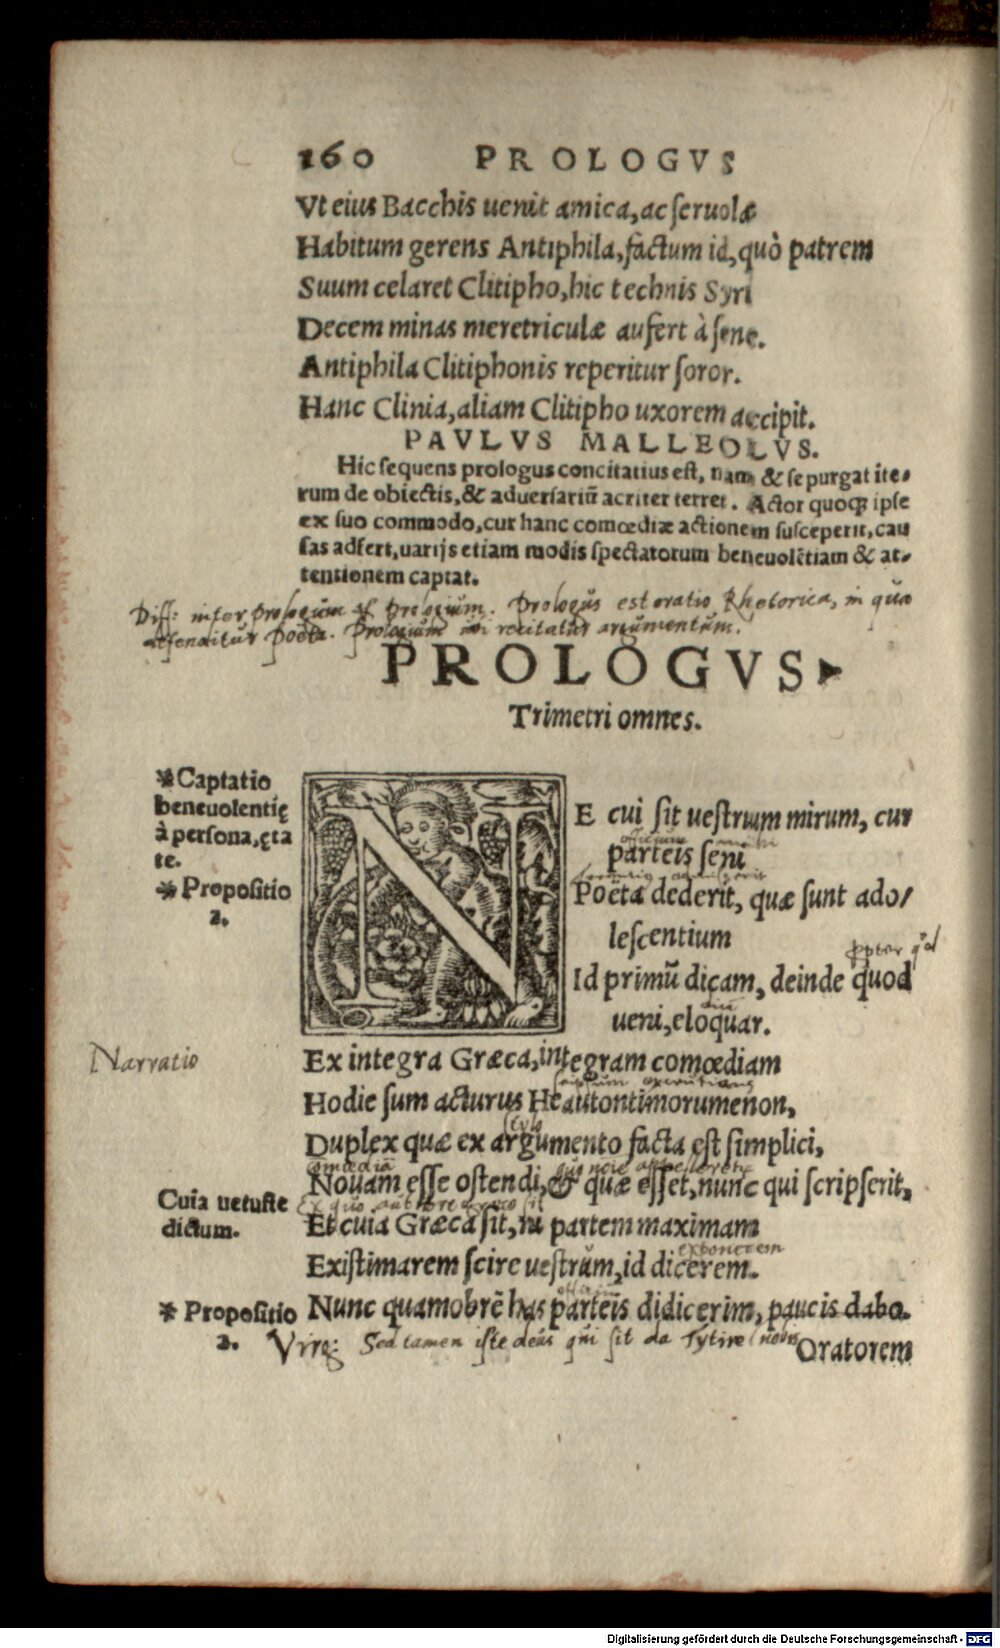 160 PROLOGVS
Vt eius Bacchis uenit amica, ac ſeruolæ
Habitum gerens Antiphila, factum id, quò patrem
Suum celaret Clitipho, hic technis Syri
Decem minas meretriculæ aufert à ſene.
Antiphila Clitiphonis reperitur ſoror.
Hanc Clinia, aliam Clitipho uxorem accipit.
PAVLVS MALLEOLVS.
Hic ſequens prologus concitatius eſt, nam & ſe purgat ite-
rum de obiectis, & aduerſariũ acriter terret. Actor quoqꝫ ipſe
ex ſuo commodo, cur hanc comœdiæ actionem ſuſceperit, cau
ſas adfert, uarijs etiam modis ſpectatorum beneuolẽtiam & at-
tentionem captat.
Diff: inter prologum et prologium. Prologus est oratio Rhetorica, in qua
defenditur poëta. Prologium ubi recitatur argumentum.
PROLOGVS
Trimetri omnes.
* Captatio
beneuolentię
à perſona, ęta
te.
* Propoſitio
2.
NE cui ſit ueſtrum mirum, cur
parteis ſeni
Poëta dederit, quæ ſunt ado/
leſcentium
propter qd
Id primũ dicam, deinde quod
ueni, eloquar.
Narratio
Ex integra Græca, integram comœdiam
Hodie ſum acturus Heautontimorumenon,
ſtylo
Duplex quæ ex argumento facta eſt ſimplici,
comœdiã
Nouam eſſe oſtendi, & quæ eſſet, nunc qui ſcripſerit,
Cuia uetuſte
dictum.
Ex quo authore
Et cuia Græca ſit, ni partem maximam
Exiſtimarem ſcire ueſtrûm, id dicerem.
* Propoſitio
2.
Nunc quamobrẽ has parteis didicerim, paucis dabo.
Virg: Sed tamen iſte deus qui ſit da Tytire nobis
Oratorem
Digitalisierung gefördert durch die Deutsche Forschungsgemeinschaft - DFG